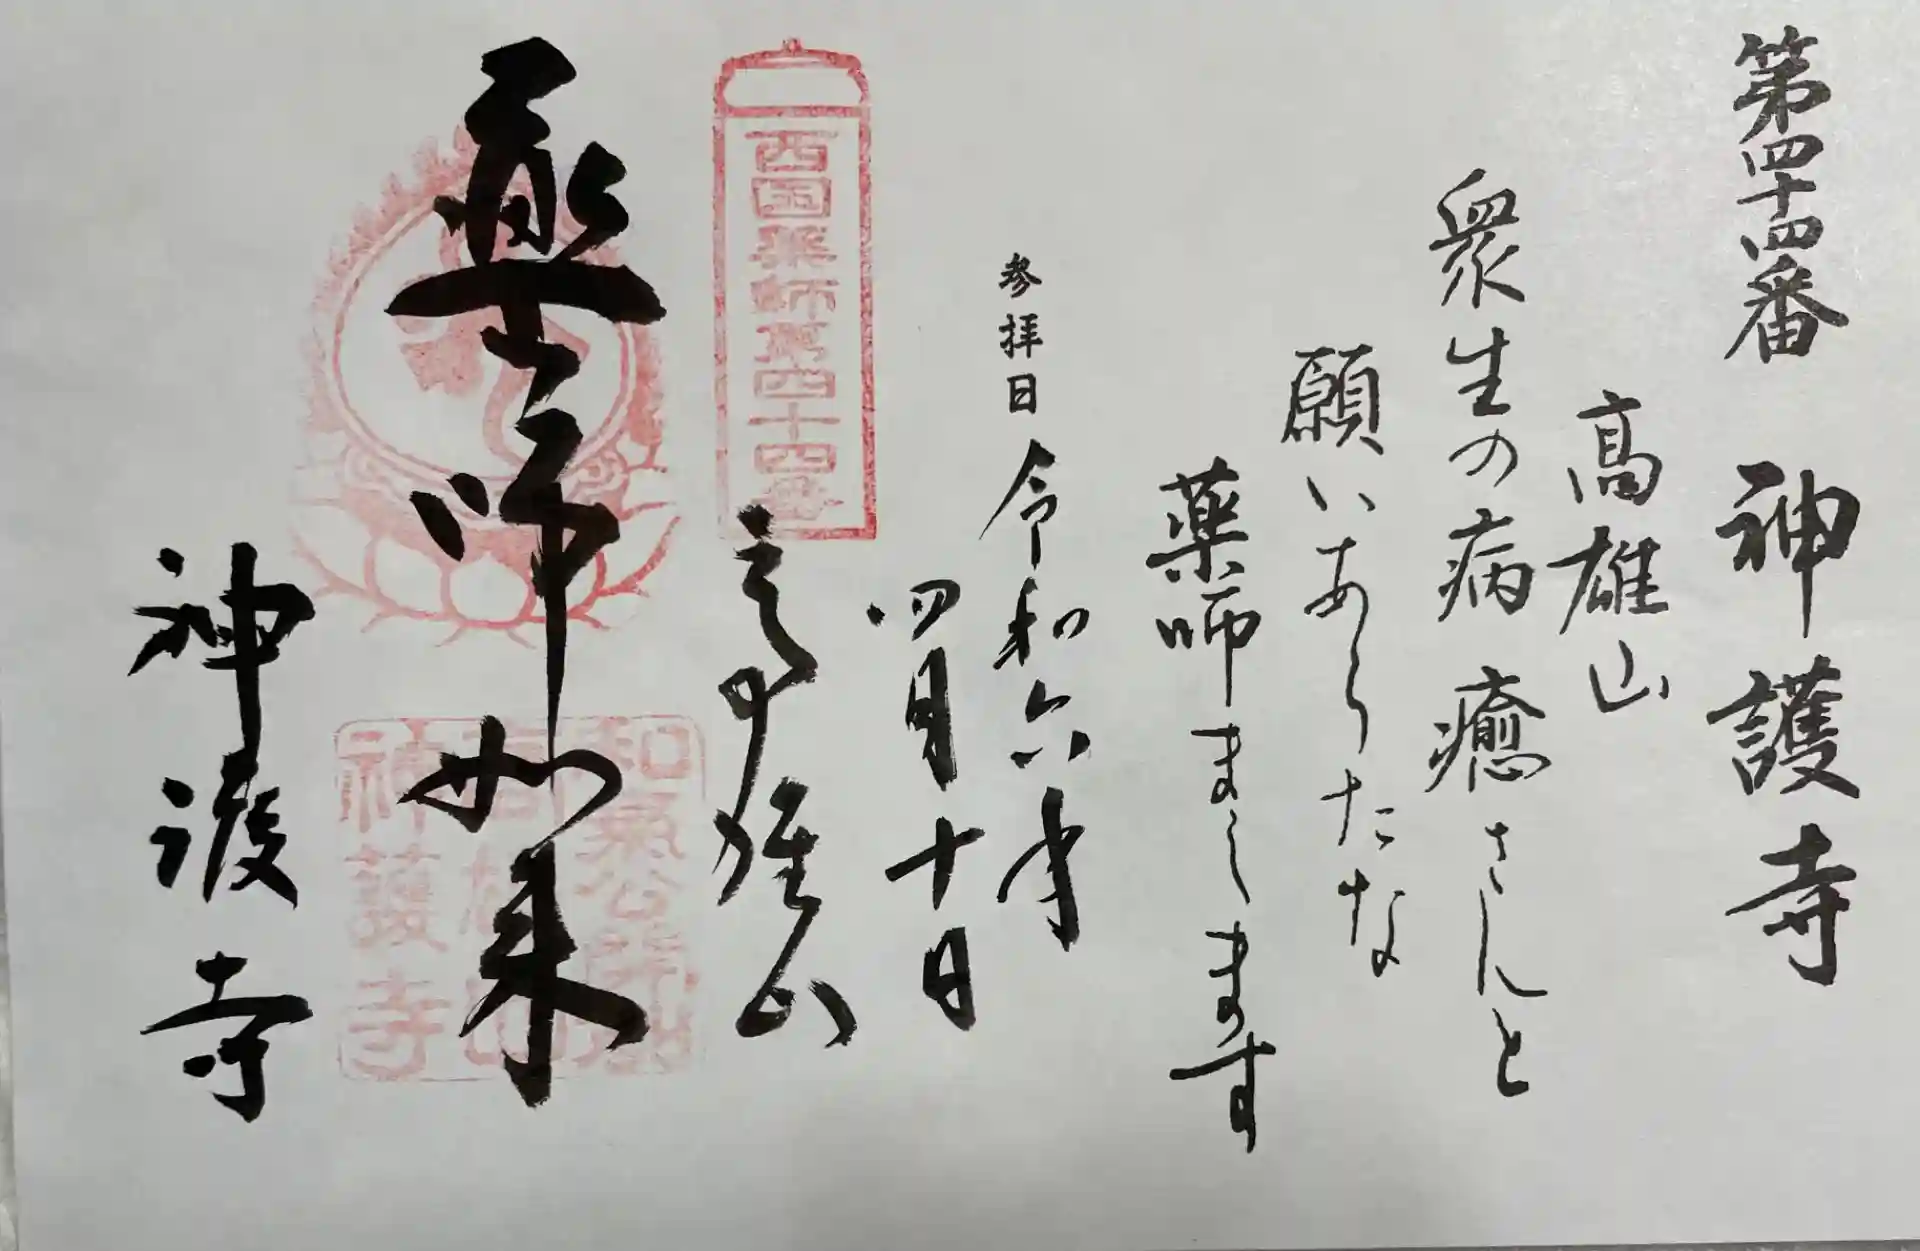 第四十四番 神護寺
高雄山
衆生の病癒さんと
願いあらたな
薬師まします
参拝日 令和六年
四月十日
西国薬師第四十四番
高雄山
薬師如来
和気公霊廟
高雄山
神護寺
神護寺